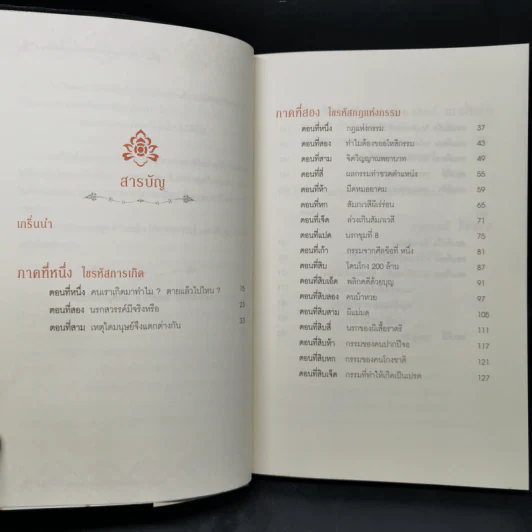 สารบัญ
เกริ่นนำ
ภาคที่หนึ่ง ไขรหัสการเกิด
ตอนที่หนึ่ง คนเราเกิดมาทำไม ? ตายแล้วไปไหน ? 15
ตอนที่สอง นรกสวรรค์มีจริงหรือ 23
ตอนที่สาม เหตุใดมนุษย์จึงแตกต่างกัน 33
ภาคที่สอง ไขรหัสกฎแห่งกรรม
ตอนที่หนึ่ง กฎแห่งกรรม 37
ตอนที่สอง ทำไมต้องขออโหสิกรรม 43
ตอนที่สาม จิตวิญญาณพยาบาท 49
ตอนที่สี่ ผลกรรมทำขวดตำแหน่ง 55
ตอนที่ห้า มีดหมออาคม 59
ตอนที่หก สัมภเวสีผีเร่ร่อน 65
ตอนที่เจ็ด ล่วงเกินสัมภเวสี 71
ตอนที่แปด นรกขุมที่ 8 75
ตอนที่เก้า กรรมจากศีลข้อที่ หนึ่ง 81
ตอนที่สิบ โดนโกง 200 ล้าน 87
ตอนที่สิบเอ็ด พลิกคดีด้วยบุญ 91
ตอนที่สิบสอง คนม้าทวย 97
ตอนที่สิบสาม ผีแม่มด 105
ตอนที่สิบสี่ นรกของผีเสื้อราตรี 111
ตอนที่สิบห้า กรรมของคนปากปีจอ 117
ตอนที่สิบหก กรรมของคนโกงชาติ 121
ตอนที่สิบเจ็ด กรรมที่ทำให้เกิดเป็นเปรต 127